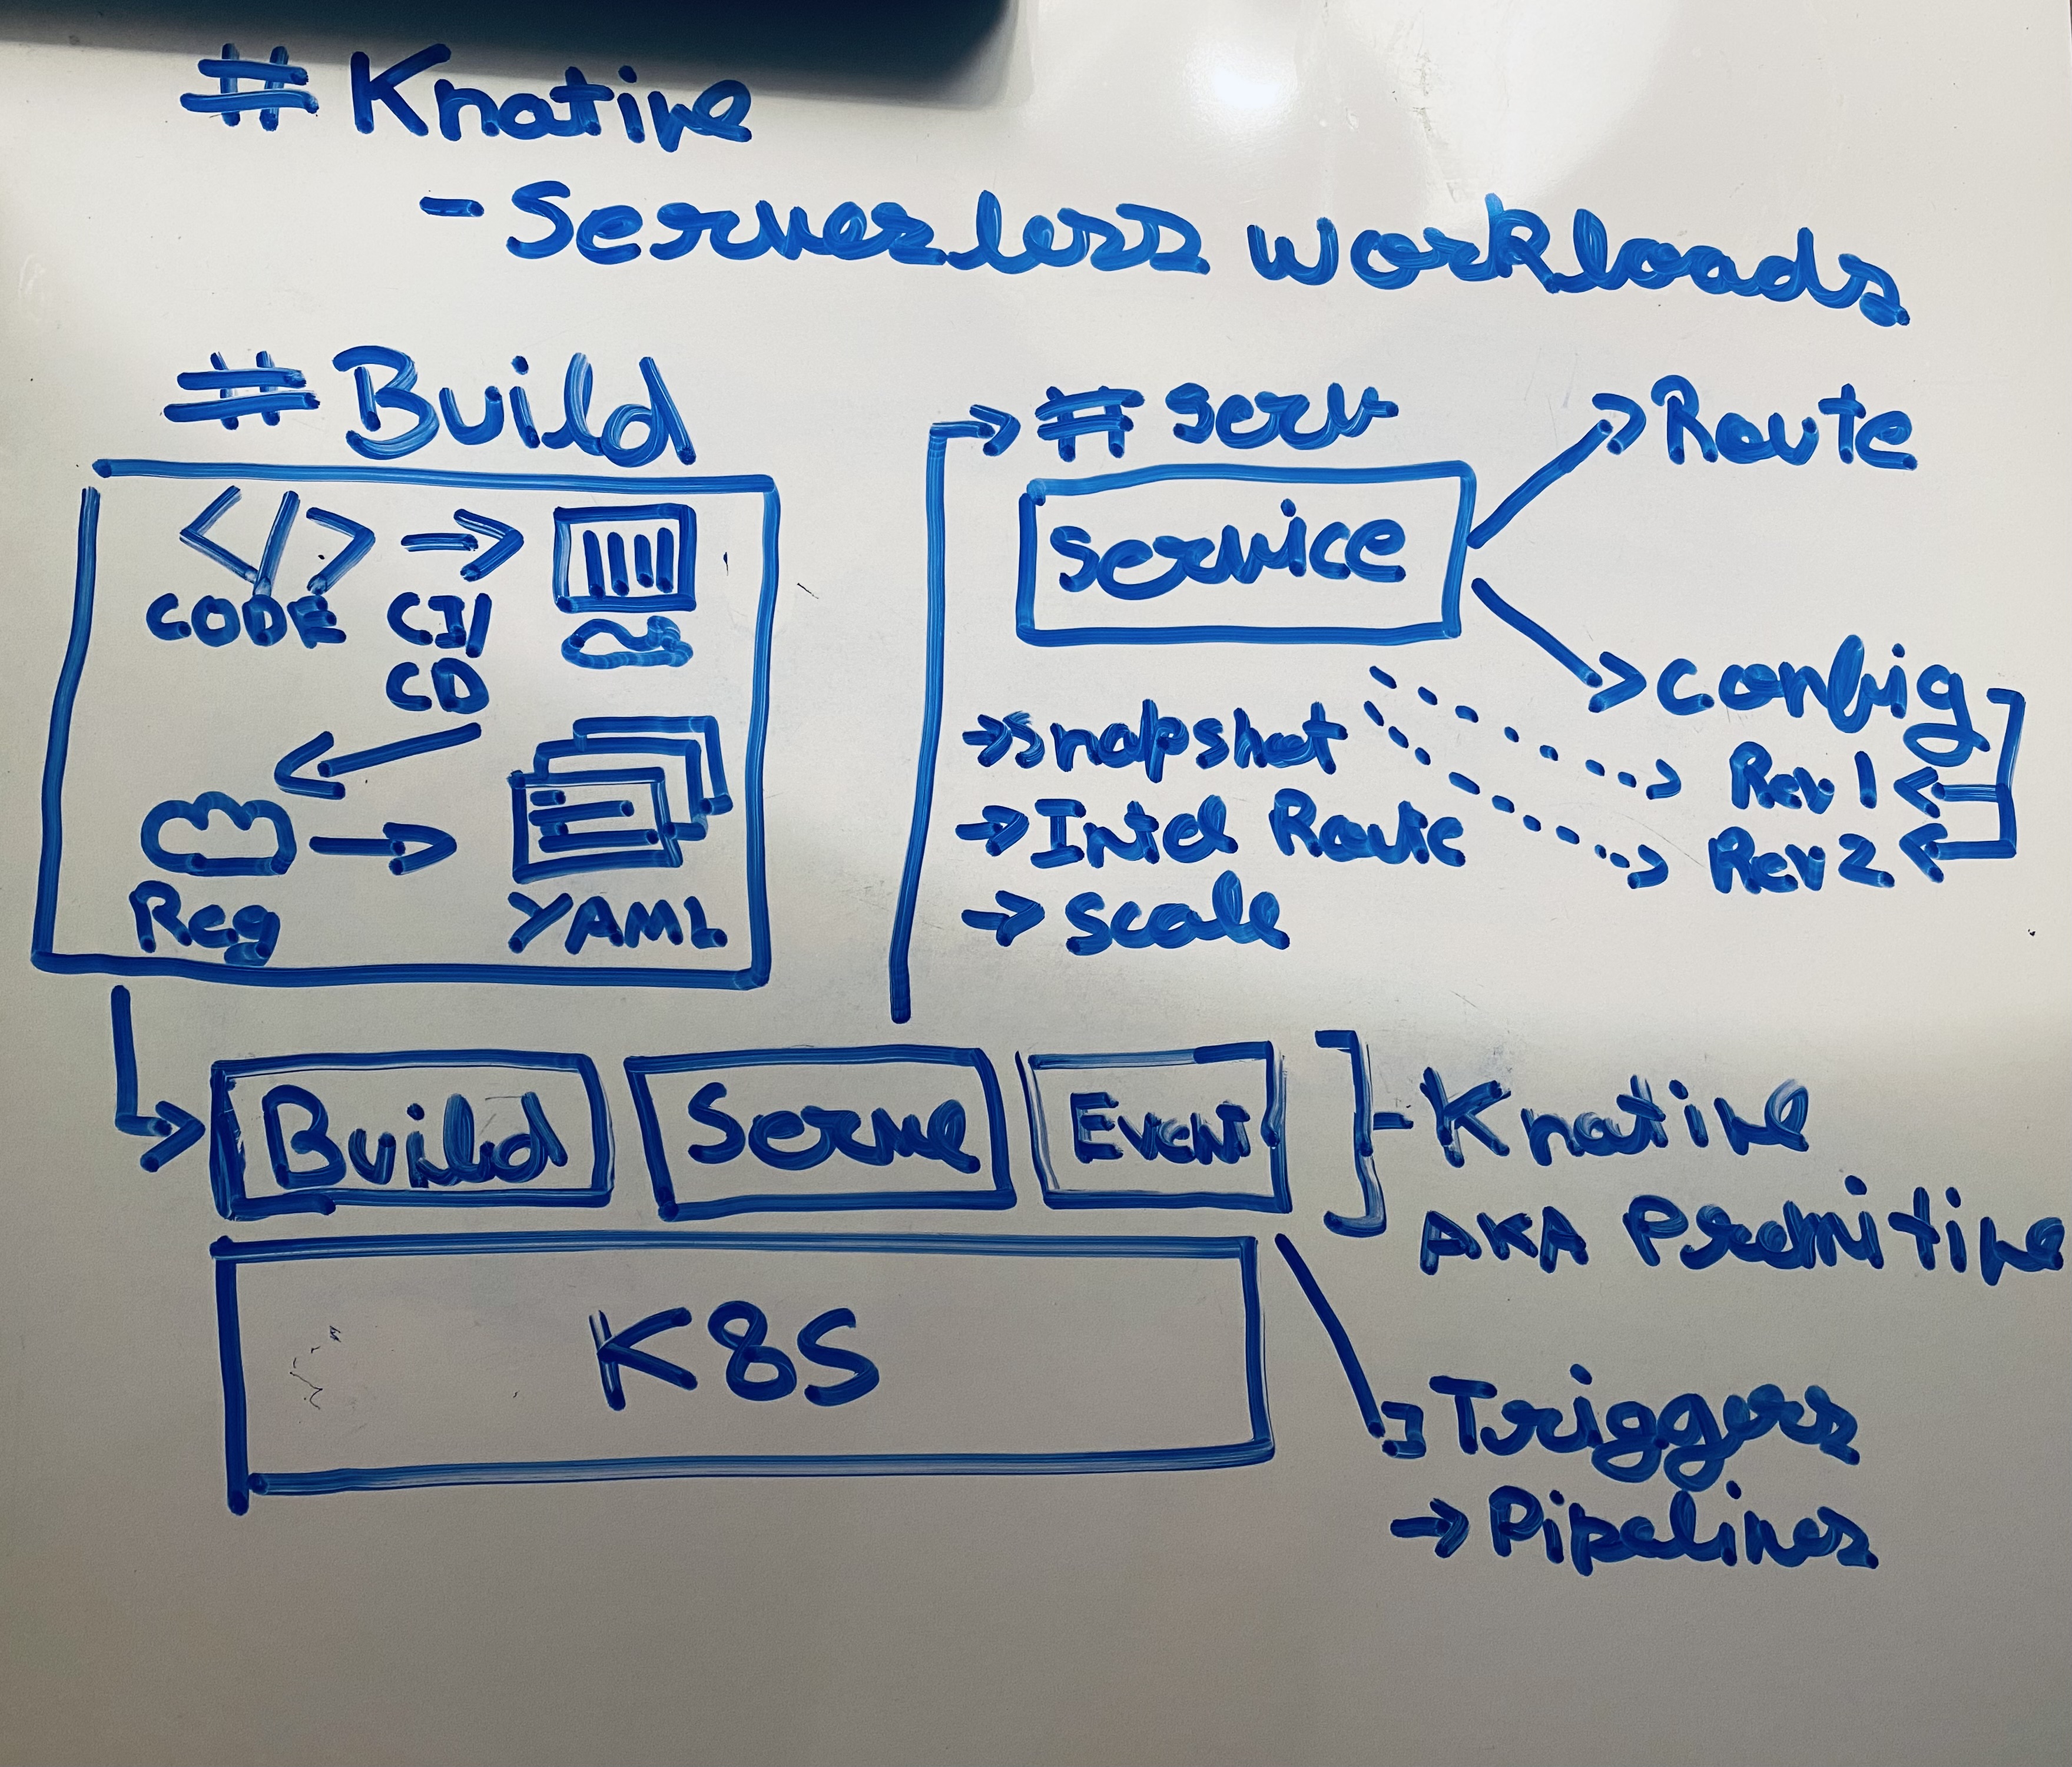 # Knative
- Serverless workloads
# Build
</>
CODE
CI/
CD
Reg
YAML
# Serv
Service
Route
Config
Rev 1
Rev 2
→ Snapshot
→ Intel Route
→ Scale
Build
Serve
Event
- Knative
AKA Premitive
K8S
Triggers
→ Pipelines